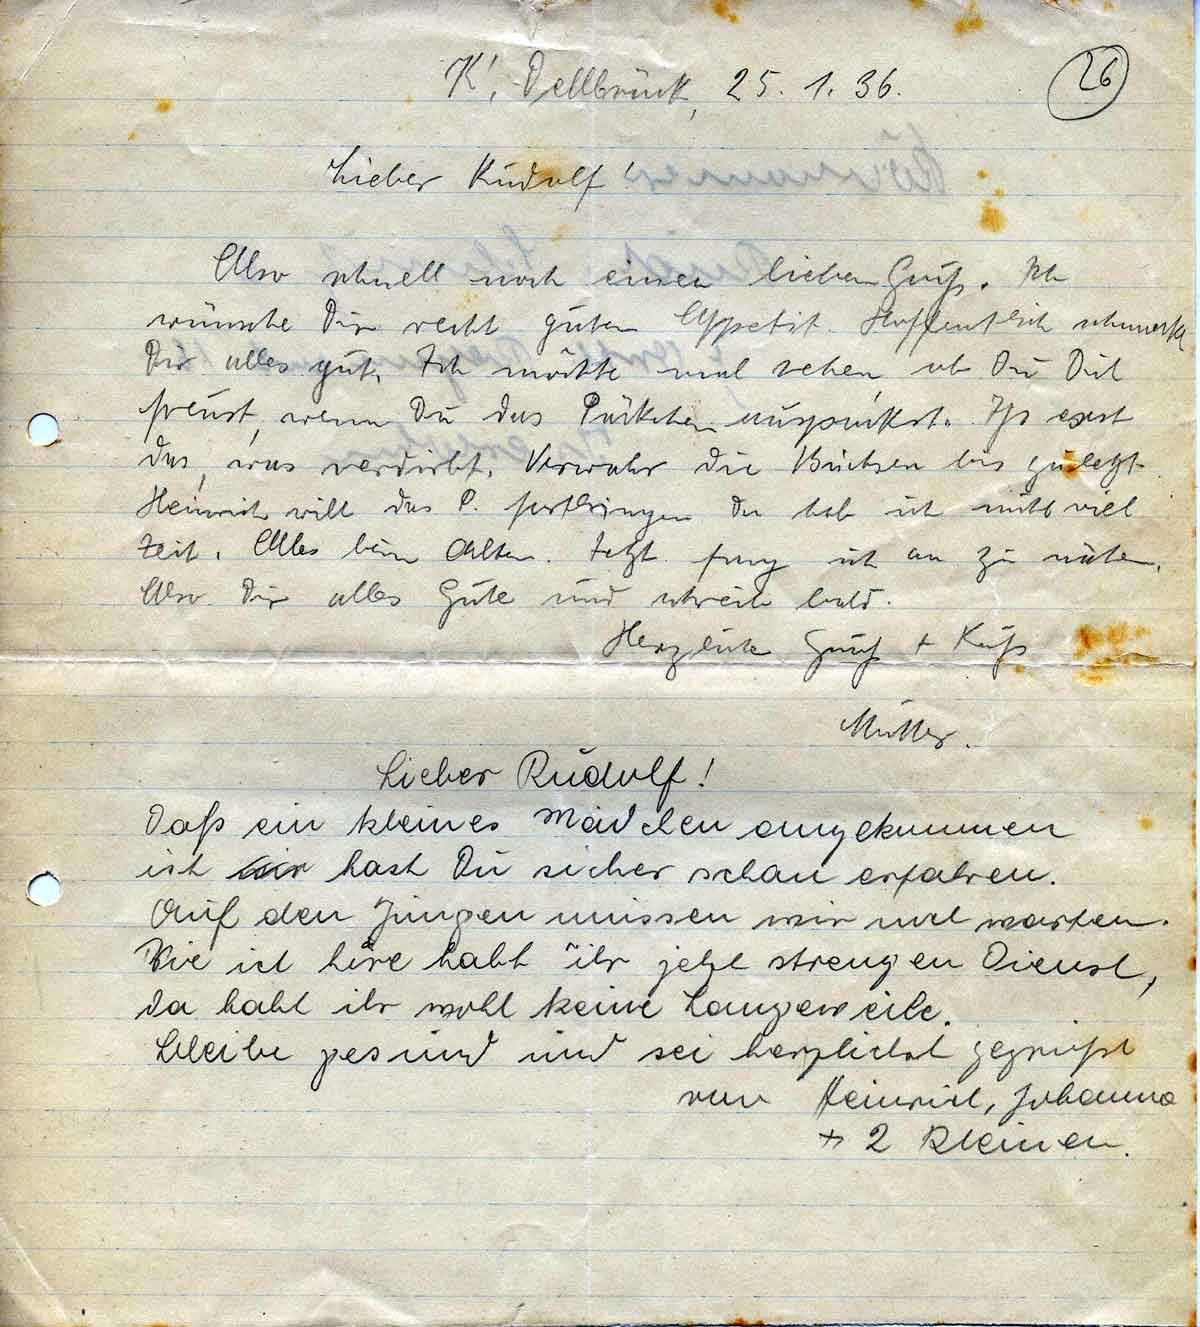 K', Dellbrück, 25. 1. 36.
26
Lieber Rudolf!
Also schnell noch einen lieben Gruß. Ich
wünsche Dir recht guten Appetit. Hoffentlich schmeckt
Dir alles gut. Ich möchte mal sehen ob Du Dich
freust, wenn Du das Päckchen auspackst. Iß erst
das, was verdirbt. Verwahr die Büchsen bis zuletzt
Heinrich will das P. fortbringen da hab ich nicht viel
Zeit. Alles beim Alten. Jetzt fang ich an zu nähen.
Also Dir alles Gute und schreib bald.
Herzliche Gruß + Kuß
Mutter.
Lieber Rudolf!
Daß ein kleines Mädchen angekommen
ist hast Du sicher schon erfahren.
Auf den Jungen müssen wir mal warten.
Wie ich höre habt ihr jetzt strengen Dienst,
da habt ihr wohl keine Langeweile.
Bleibe gesund und sei herzlichst gegrüßt
von Heinrich, Johanna
+ 2 Kleinen.